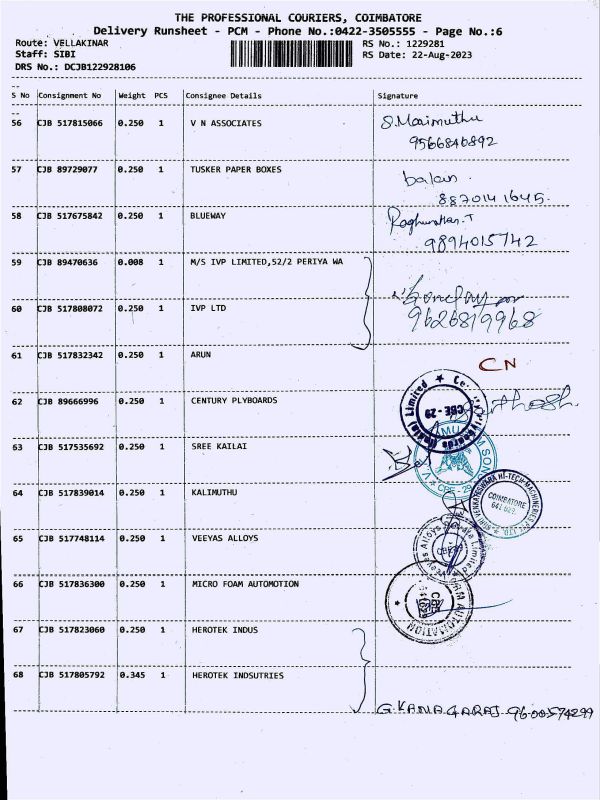 THE PROFESSIONAL COURIERS, COIMBATORE
Delivery Runsheet - PCM - Phone No.:0422-3505555 - Page No.:6
Route: VELLAKINAR RS No.: 1229281
Staff: SIBI RS Date: 22-Aug-2023
DRS No.: DCJB122928106
S No Consignment No Weight PCS Consignee Details Signature
56 CJB 517815066 0.250 1 V N ASSOCIATES S.Marimuthu
9566846892
57 CJB 89729077 0.250 1 TUSKER PAPER BOXES
8870141645.
58 CJB 517675842 0.250 1 BLUEWAY
9894015742
59 CJB 89470636 0.008 1 M/S IVP LIMITED,52/2 PERIYA WA
60 CJB 517808072 0.250 1 IVP LTD
9626819968
61 CJB 517832342 0.250 1 ARUN CN
62 CJB 89666996 0.250 1 CENTURY PLYBOARDS
CBE - 29
63 CJB 517535692 0.250 1 SREE KAILAI
64 CJB 517839014 0.250 1 KALIMUTHU
SHRI VENKATESWARA HI-TECH MACHINERIES PVT. LTD.
COIMBATORE
65 CJB 517748114 0.250 1 VEEYAS ALLOYS
66 CJB 517836300 0.250 1 MICRO FOAM AUTOMOTION
AUTOMATION
67 CJB 517823060 0.250 1 HEROTEK INDUS
68 CJB 517805792 0.345 1 HEROTEK INDSUTRIES
G.KANAGARAJ 9600574299